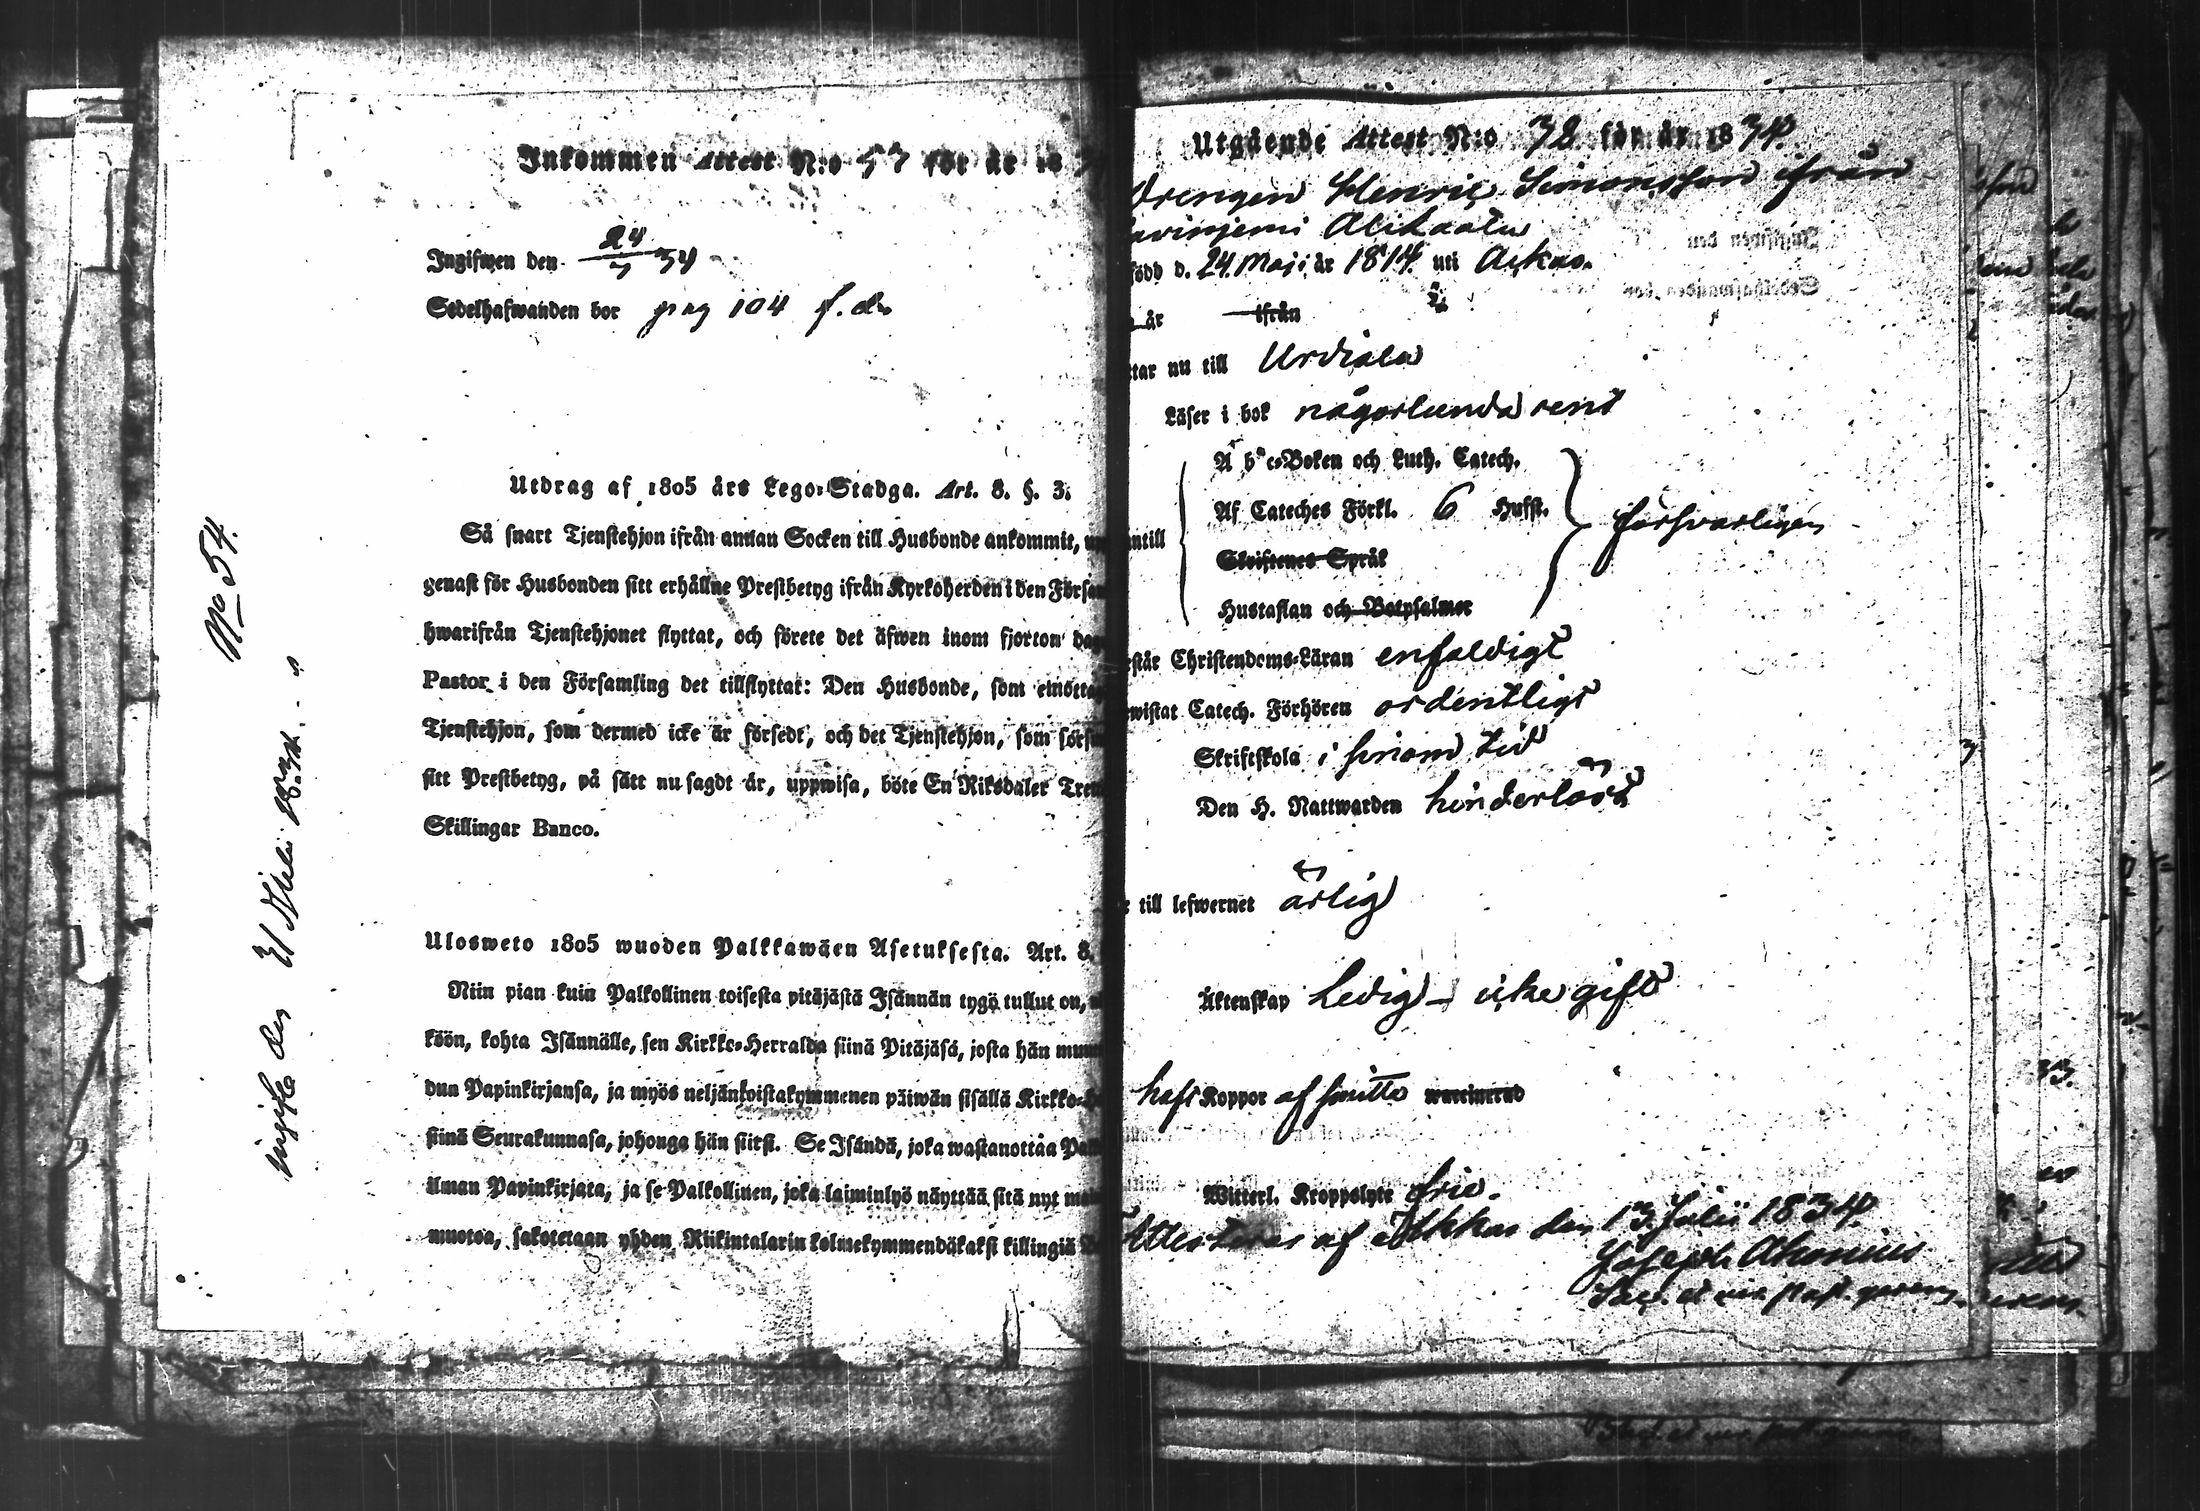 Inkommen Attest N:o 57 för år 18
Ingifwen den 24/7 34
Sedelhafwanden bor pag 104 f. d.
Utdrag af 1805 års Lego-Stadga. Art. 8. §. 3.
Så snart Tjenstehjon ifrån annan Socken till Husbonde ankommit,
genast för Husbonden sitt erhållne Prestbetyg ifrån Kyrkoherden i den Försam
hwarifrån Tjenstehjonet flyttat, och förete det äfwen inom fjorton dag
Pastor i den Församling det tillflyttat: Den Husbonde, som emottag
Tjenstehjon, som dermed icke är försedt, och det Tjenstehjon, som försu
sitt Prestbetyg, på sätt nu sagdt är, uppwisa, böte En Riksdaler Tret
Skillingar Banco.
Ulosweto 1805 wuoden Palkkawäen Asetuksesta. Art. 8.
Niin pian kuin Palkollinen toisesta pitäjästä Isännän tygö tullut on,
köön, kohta Isännälle, sen Kirkko-Herralda siinä Pitäjäsä, josta hän muu
dun Papinkirjansa, ja myös neljäntoistakymmenen päiwän sisällä Kirkko-
siinä Seurakunnasa, johonga hän siirst. Se Isändä, joka wastanottaa Pal
ilman Papinkirjata, ja se Palkollinen, joka laiminlyö näyttää sitä nyt ma
muotoa, sakotetaan yhden Riikintalarin kolmekymmendäkaksi killingiä
No 54.
ingift den
Utgående Attest N:o 38 för år 1834.
Drengen Henric Simonsson ifrån
Alikaala
född d. 24. Maji år 1814. uti Ackas.
år ifrån
tar nu till Urdiala
Läser i bok någorlunda rent
A b c-Boken och Luth. Catech.
Af Cateches Förkl. 6 Hufst.
försvarligen
antill
Skriftenes Språk
Hustaflan och Botpsalmer
står Christendoms-Läran enfaldigt
wistat Catech. Förhören ordentligt
Skriftskola i sinom tid
Den H. Nattwarden hinderlöst
till lefwernet ärlig
Äktenskap Ledig - icke gift
haft Koppor af smitto waccinerad
Witterl. Kroppslyte frie.
Attesteras af Akkas den 13 Julii 1834.
Joseph Ahonius